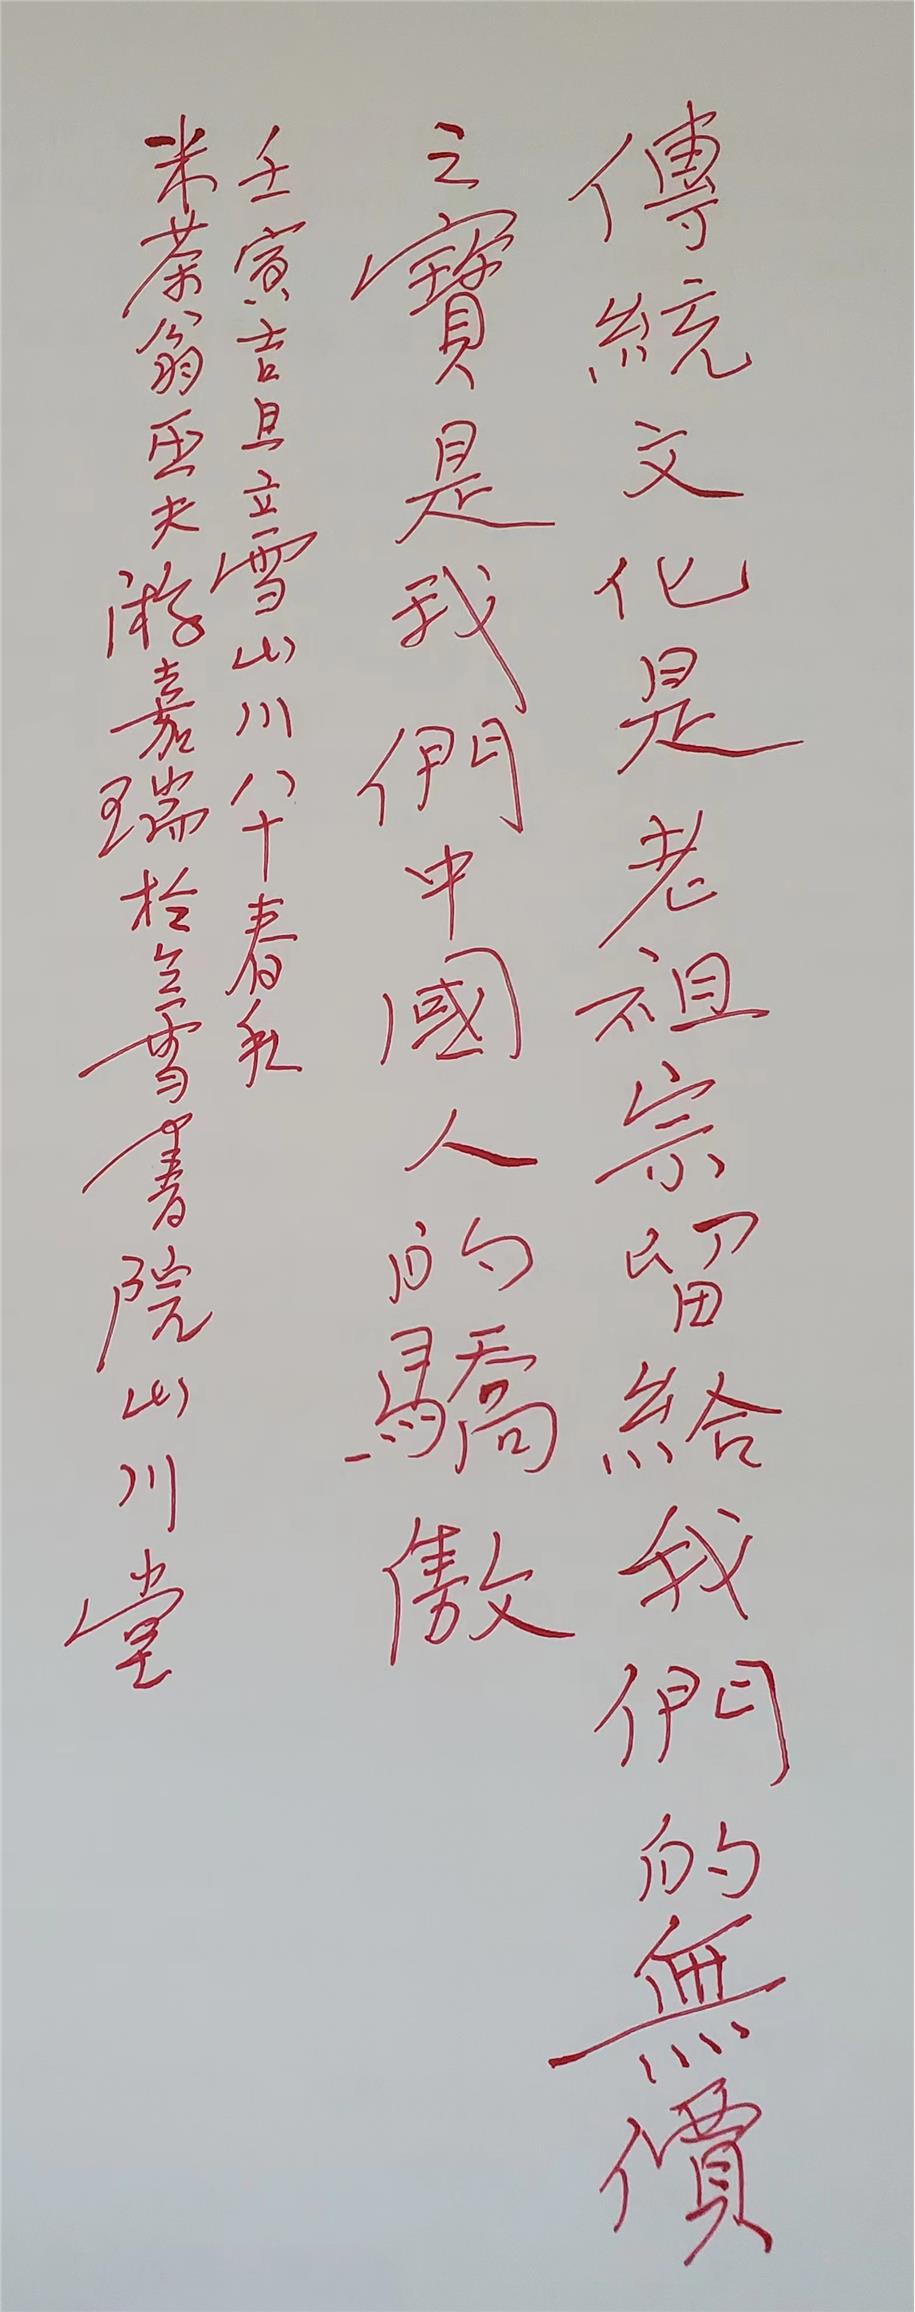 傳統文化是老祖宗留給我們的無價
之寶是我們中國人的驕傲
壬寅吉旦立雪山川八十春秋
米茶翁巫夫游嘉瑞於立雪書院山川堂